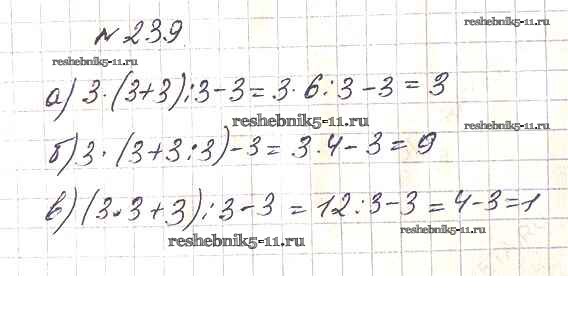 №239.
reshebnik5-11.ru
reshebnik5-11.ru
а) 3·(3+3):3-3=3·6:3-3=3
reshebnik5-11.ru
reshebnik5-11.ru
б) 3·(3+3:3)-3=3·4-3=9
в) (3·3+3):3-3=12:3-3=4-3=1
reshebnik5-11.ru
reshebnik5-11.ru